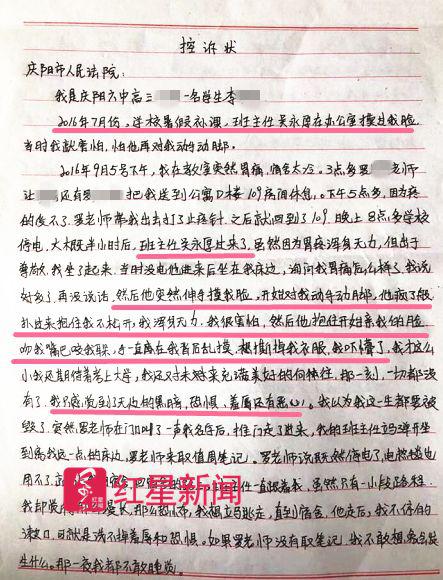 控诉状
庆阳市人民法院:
我是庆阳六中高三 一名学生李
2016年7月份,学校暑假补课,班主任吴永厚在办公室摸过我脸
当时我就害怕,怕他再对我动手动脚.
2016年9月5号下午,我在教室突然胃痛,宿舍太冷.3点多罗 老师
让 还有罗 把我送到公寓D楼109房间休息,下午5点多,因为疼
的受不了.罗老师带我出去打了止疼针.之后就回到了109.晚上8点多学校
停电,大概半小时后,班主任吴永厚过来了.虽然因为胃疼浑身无力,但出于
尊敬,我坐了起来.当时没电他进来后坐在我床边,询问我胃痛怎么样了.我说
好多了.再没说话,然后他突然伸手摸我脸,开始对我动手动脚,他疯了般
扑过来抱住我不松开,我浑身无力.我很害怕,然后他抱住开始亲我的脸
吻我嘴巴咬我耳朵,手一直在我背后乱摸,想撕掉我衣服,我吓懵了,我才这么
小我还期待着考上大学,我还对未来充满美好的向往,那一刻,一切都没
有了.我只感觉到了无边的黑暗,恐惧,羞辱还有恶心.我以为我这一生都要被
毁了.突然罗老师在门口叫了一声我名字后,推门走了进来,我的班主任吗弹开坐
到离我远一点的床边,罗老师来取值周笔记.罗老师说既然停电了,电热毯也
用不了,
主任一直跟着我,虽然只有一小段路程
我却觉得 漫长,那么恐怖,我想立马逃走,直到宿舍,他走后,我不停的
漱口,可就是洗不掉羞辱和恐惧.如果罗老师没有取笔记,我不敢想象会发
生什么.那一夜我都不敢睡觉.
红星
红星新闻